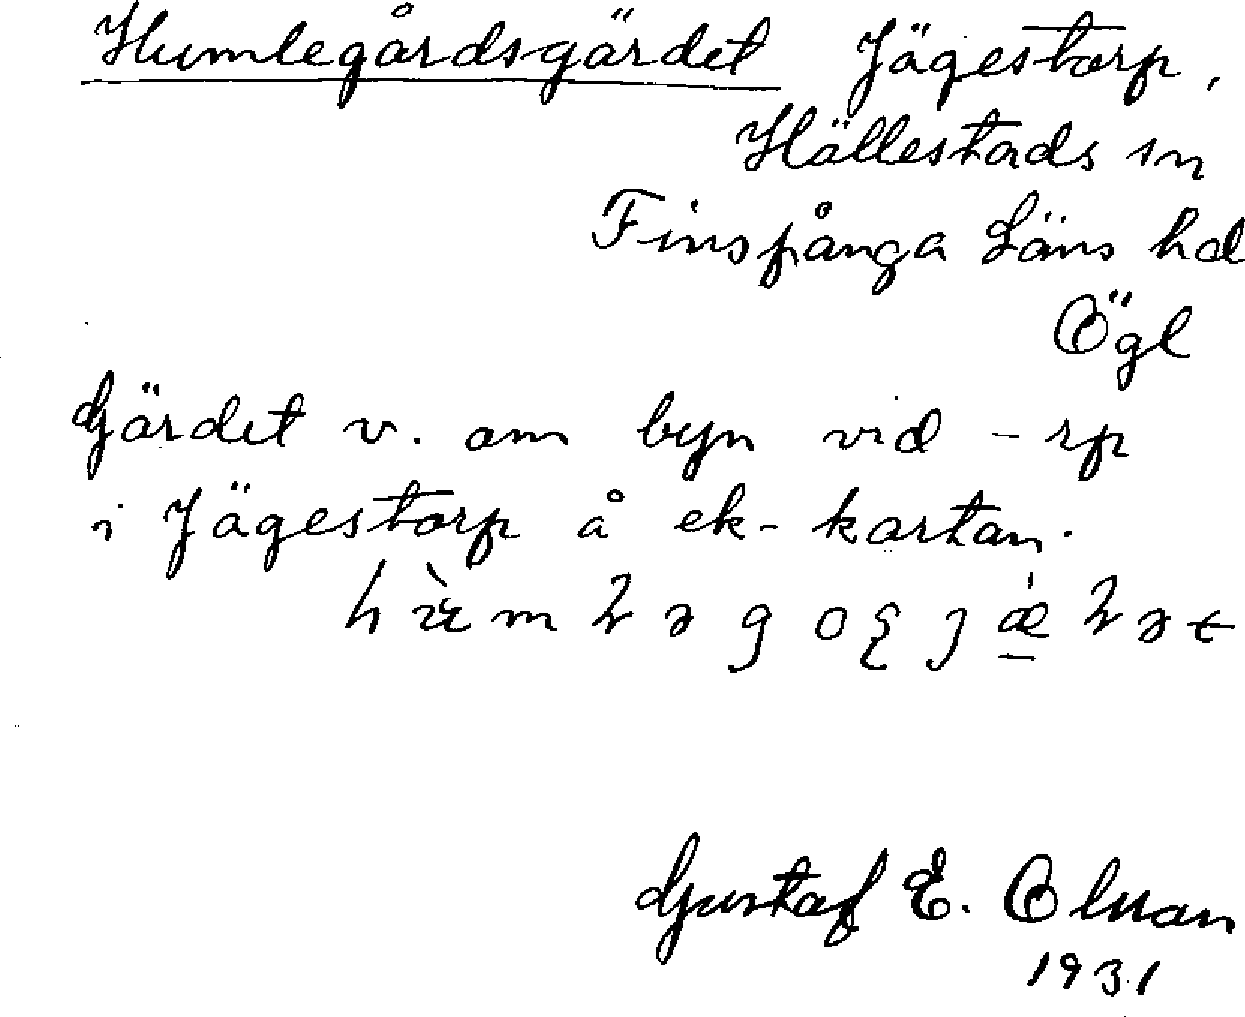 Humlegårdsgärdet Jägestorp,
Hällestads sn
Finspånga Läns hd
Ögl
Gärdet v. om byn vid -rp
i Jägestorp å ek-kartan.
Gustaf E. Olsson
1931